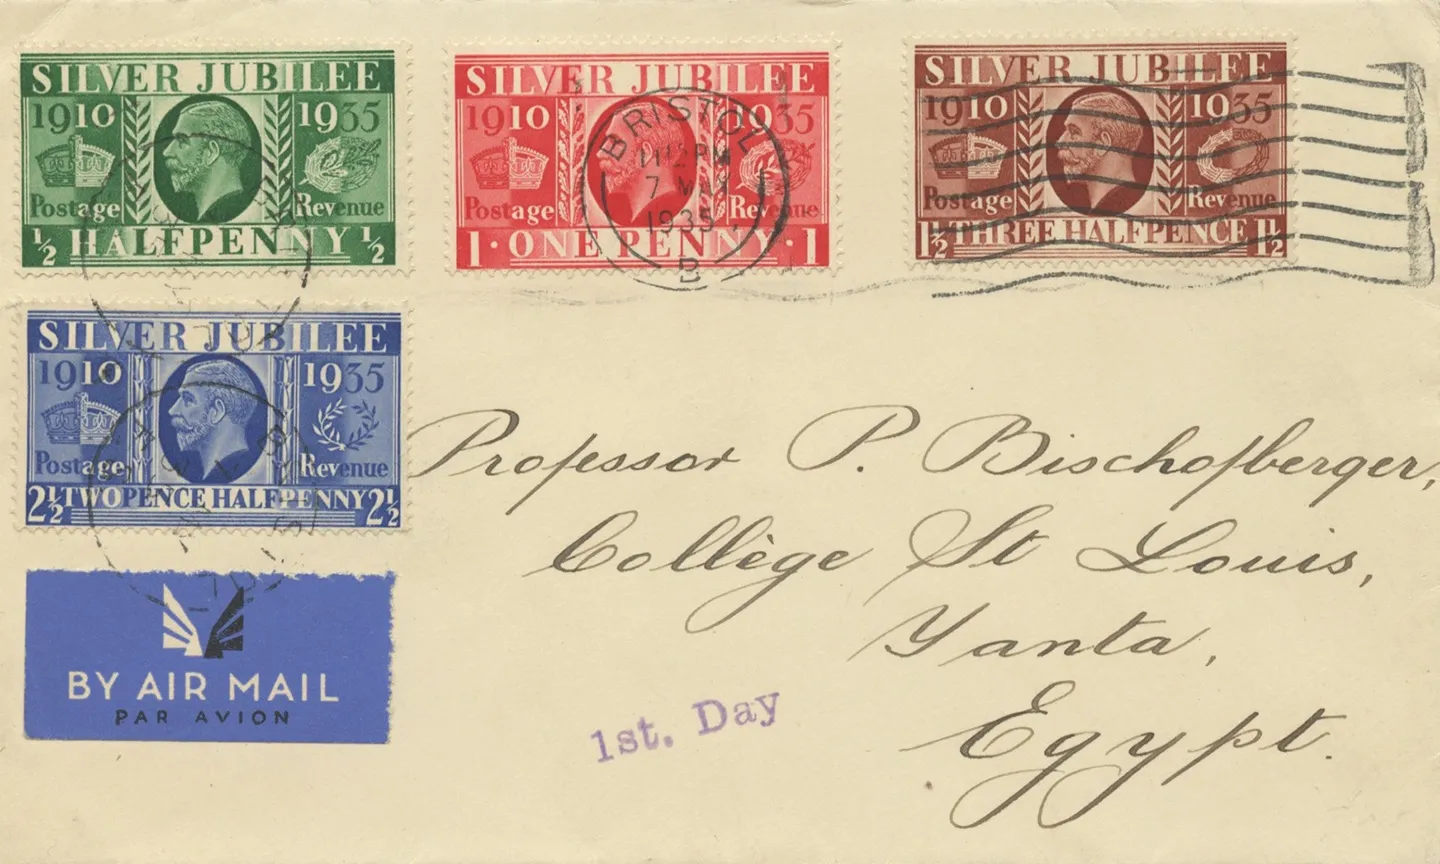 SILVER JUBILEE
1910 1935
Postage Revenue
½ HALFPENNY ½
SILVER JUBILEE
1910 1935
Postage Revenue
1 · ONE PENNY · 1
BRISTOL
7 MAY
1935
B
SILVER JUBILEE
1910 1935
Postage Revenue
1½ THREE HALFPENCE 1½
SILVER JUBILEE
1910 1935
Postage Revenue
2½ TWOPENCE HALFPENNY 2½
BY AIR MAIL
PAR AVION
Professor P. Bischofberger,
Collège St Louis,
Tanta,
Egypt.
1st. Day